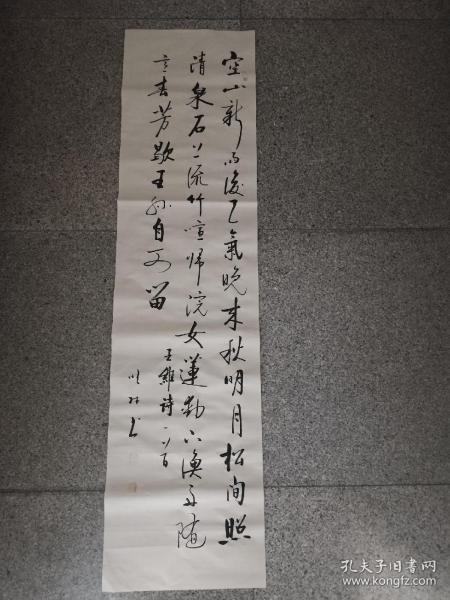 空山新雨後天氣晚来秋明月松间照
清泉石上流竹喧帰浣女蓮動下漁舟随
意春芳歇王孙自可留
王維詩一首
书
孔夫子旧书网
www.kongfz.com